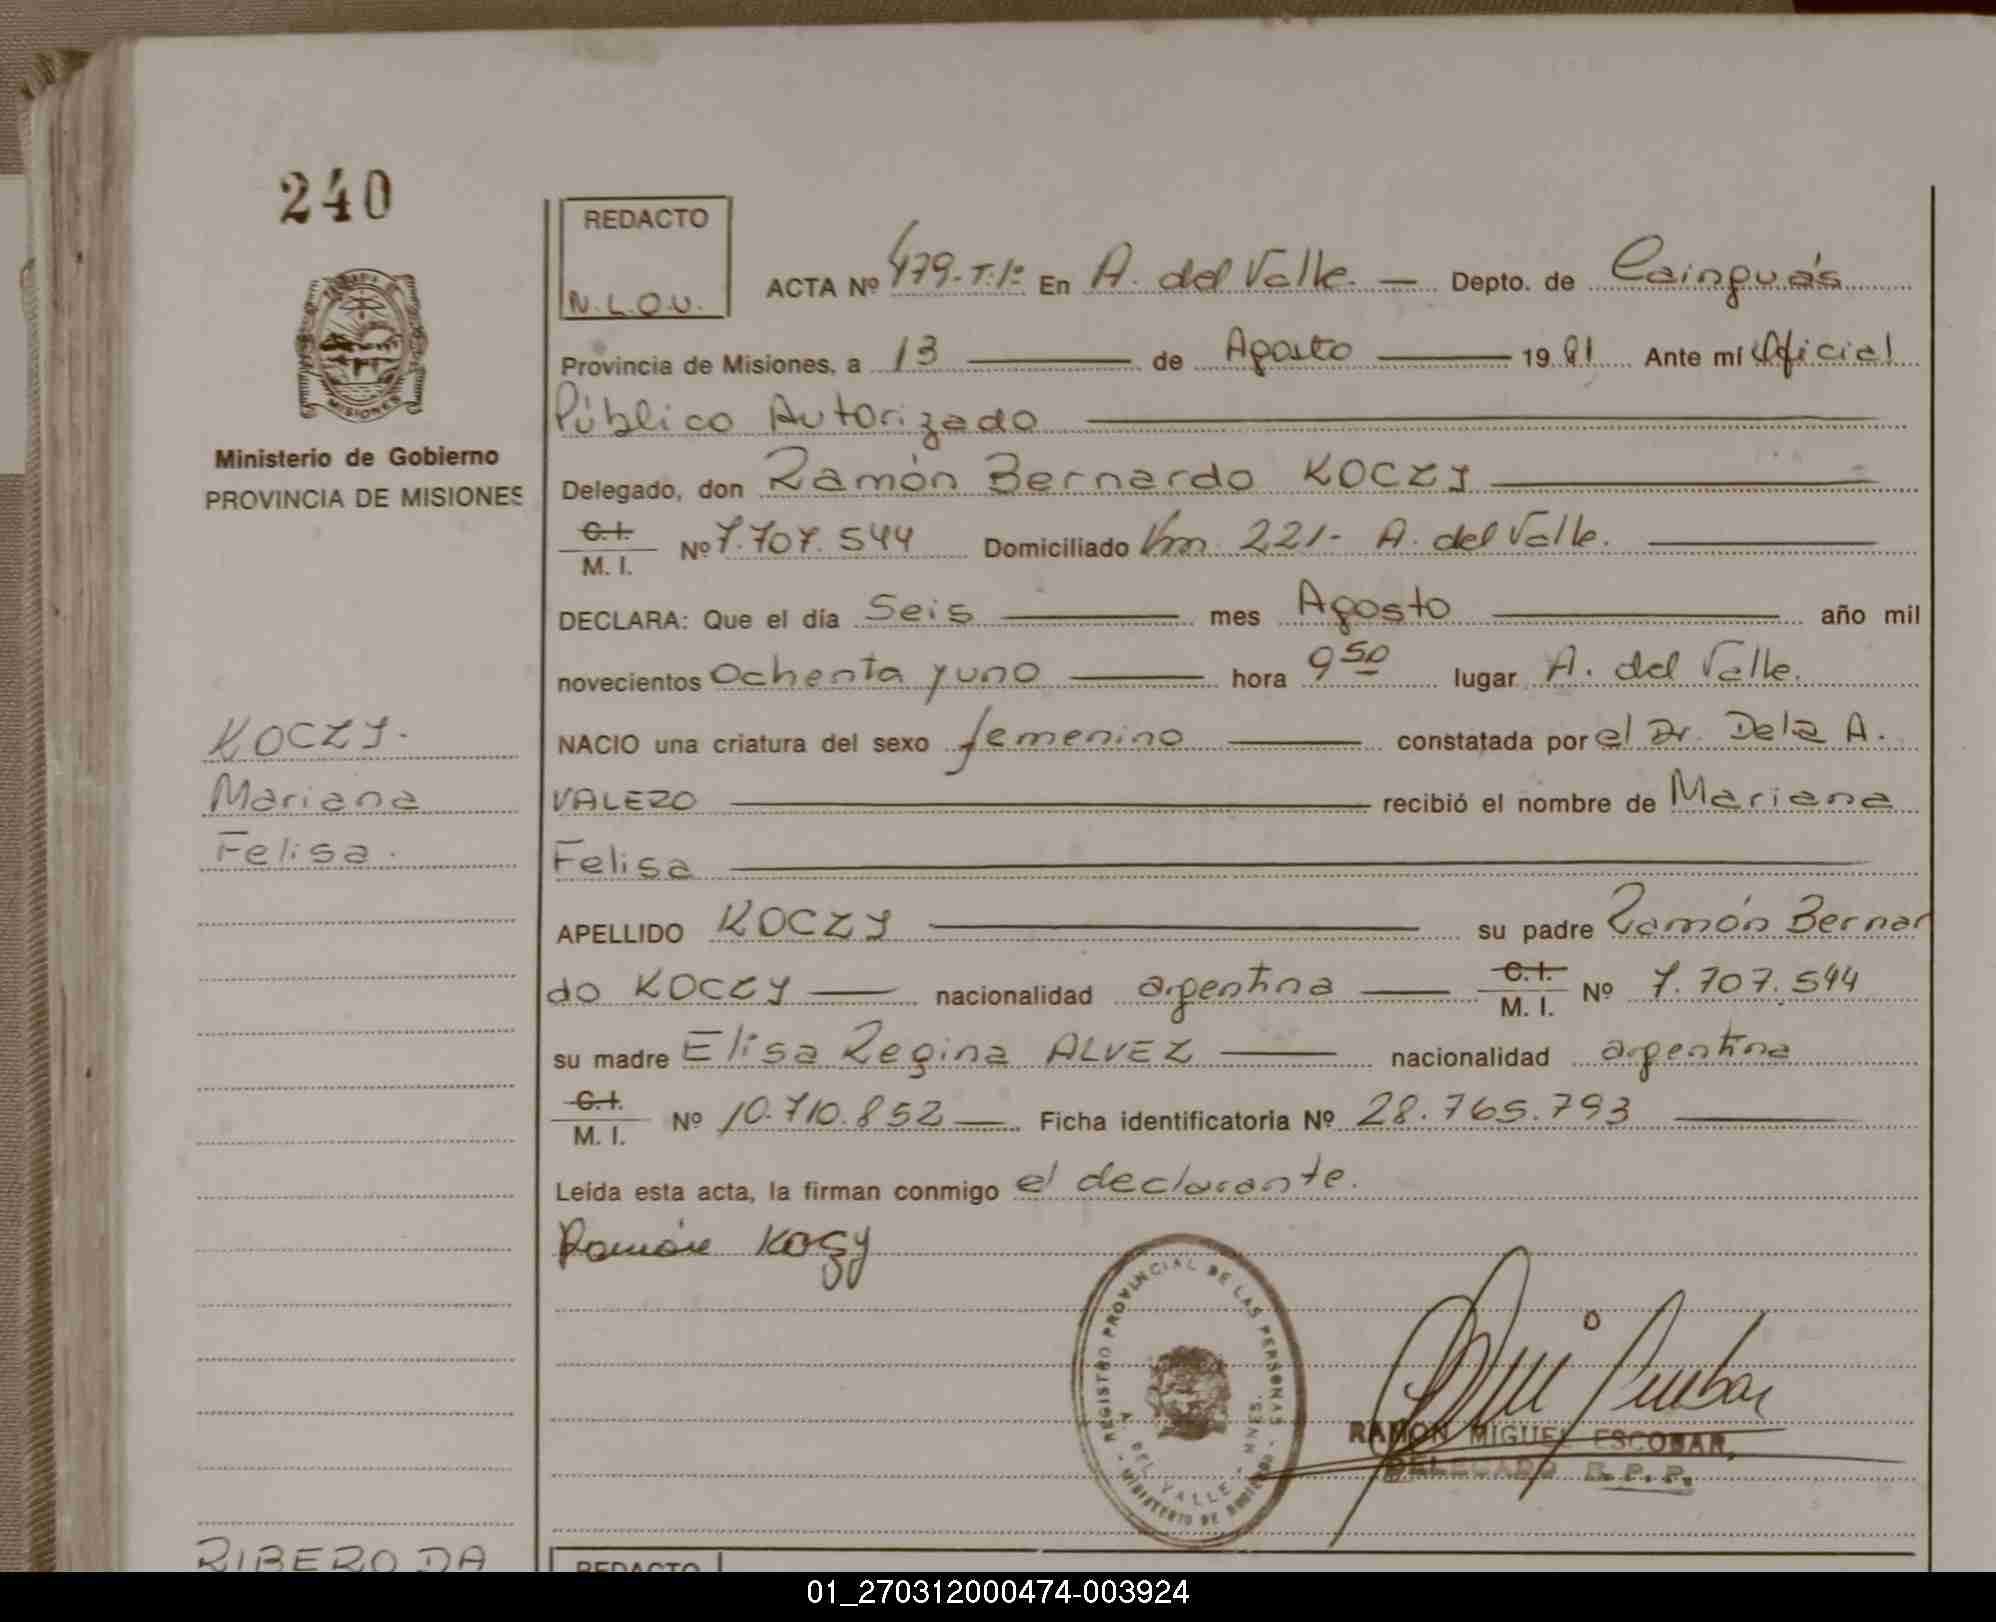 240
REDACTO
N.L.O.U.
ACTA Nº 479-T.1º En A. del Valle. — Depto. de Cainguás
Provincia de Misiones, a 13 — de Agosto — 19 81 Ante mí Oficial
Público Autorizado
MISIONES
Ministerio de Gobierno
PROVINCIA DE MISIONES
Delegado, don Ramón Bernardo KOCZY
C.I.
M. I. Nº 7.707.544 Domiciliado Km 221- A. del Valle.
DECLARA: Que el día Seis — mes Agosto — año mil
novecientos ochenta y uno — hora 9 50 lugar A. del Valle.
KOCZY.
Mariana
Felisa.
NACIO una criatura del sexo femenino — constatada por el Dr. Dela A.
VALEZO — recibió el nombre de Mariana
Felisa
APELLIDO KOCZY — su padre Ramón Bernar
do KOCZY — nacionalidad argentina — C.I.
M. I. Nº 7.707.544
su madre Elisa Regina ALVEZ — nacionalidad argentina
C.I.
M. I. Nº 10.710.852 — Ficha identificatoria Nº 28.765.793
Leída esta acta, la firman conmigo el declarante.
Ramón Kozy
REGISTRO PROVINCIAL DE LAS PERSONAS
A. DEL VALLE - MNES.
MINISTERIO DE
RAMON MIGUEL ESCOBAR,
DELEGADO R.P.P.
RIBERO DA
REDACTO
01_270312000474-003924